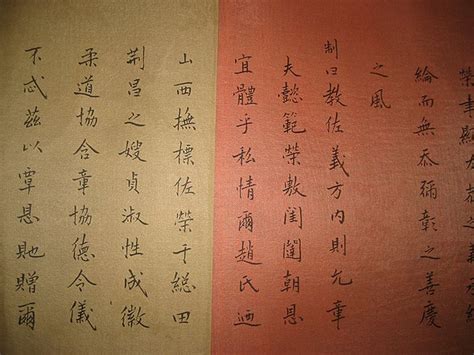 綸而無忝彌彰之善慶
之風
制曰教佐義方內則允章
夫懿範榮敷閨闈朝恩
宜體乎私情爾趙氏迺
山西撫標佐榮于総田
荆昌之嫂貞淑性成徽
柔道協合章協德令儀
不忒茲以覃恩貤贈爾